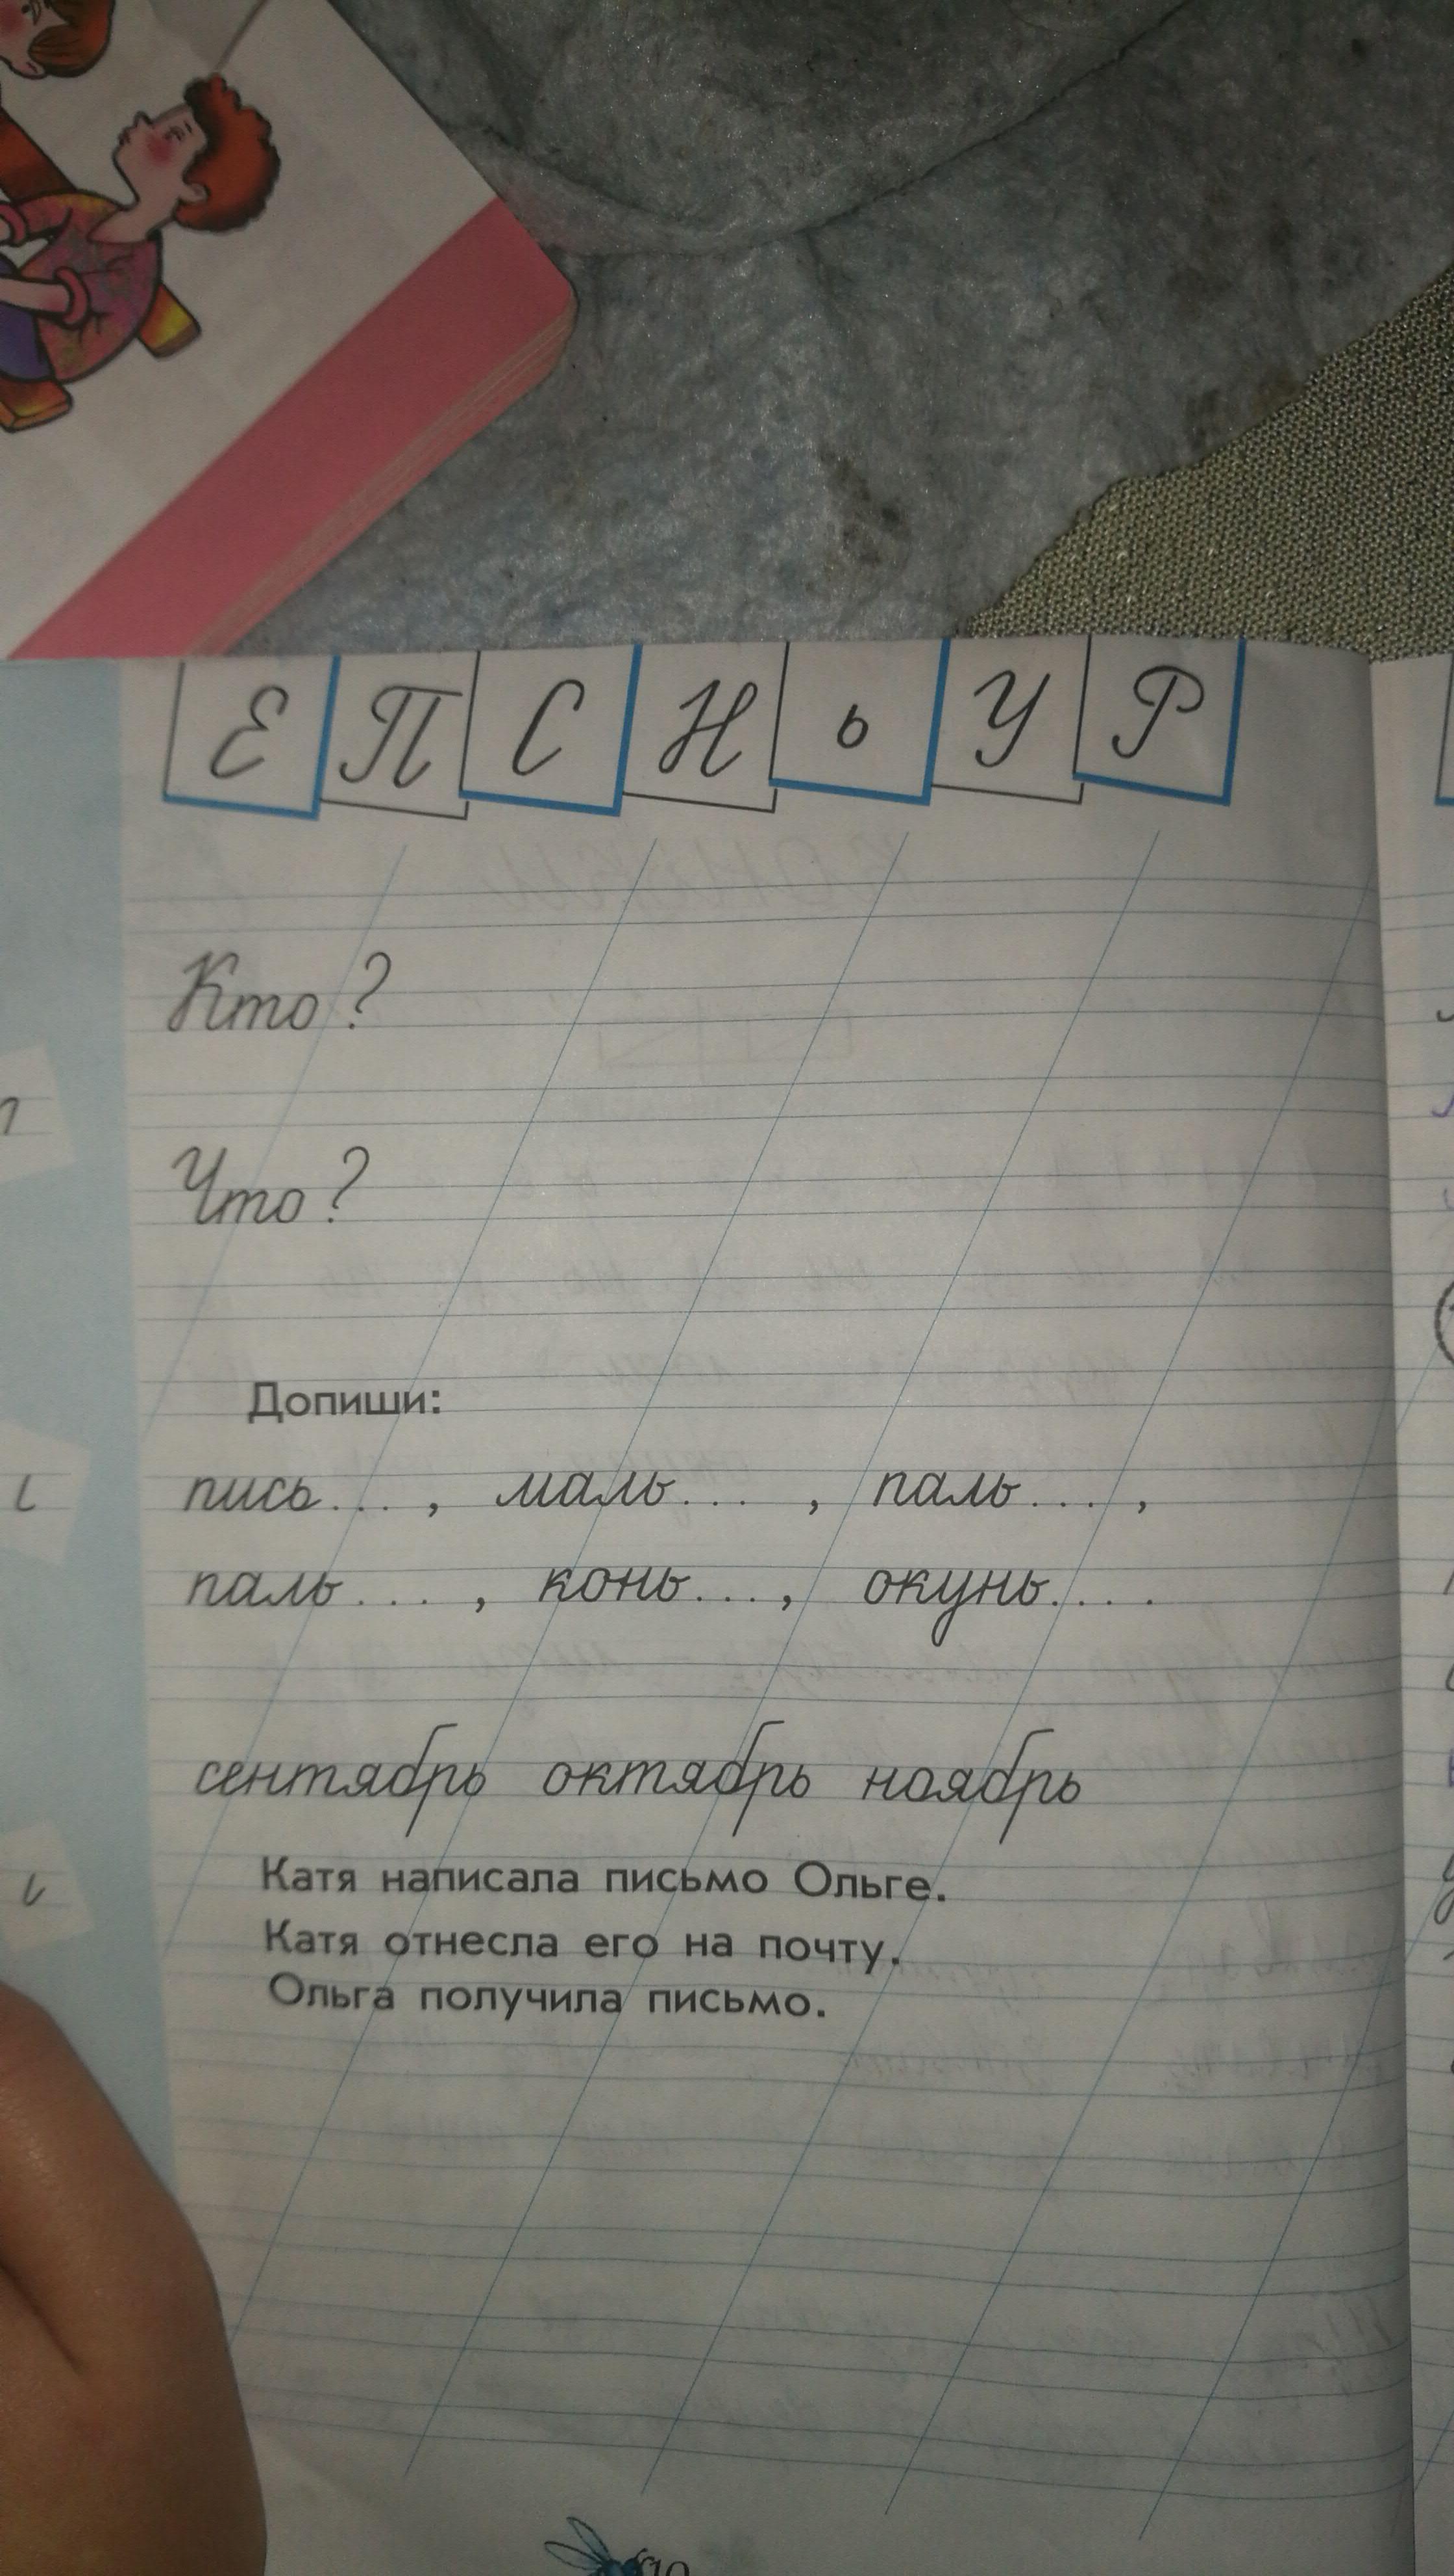 Е П С Н ь У Р
Кто?
Что?
Допиши:
пись... , маль... , паль.... ,
паль... , конь..., окунь....
сентябрь октябрь ноябрь
Катя написала письмо Ольге.
Катя отнесла его на почту.
Ольга получила письмо.